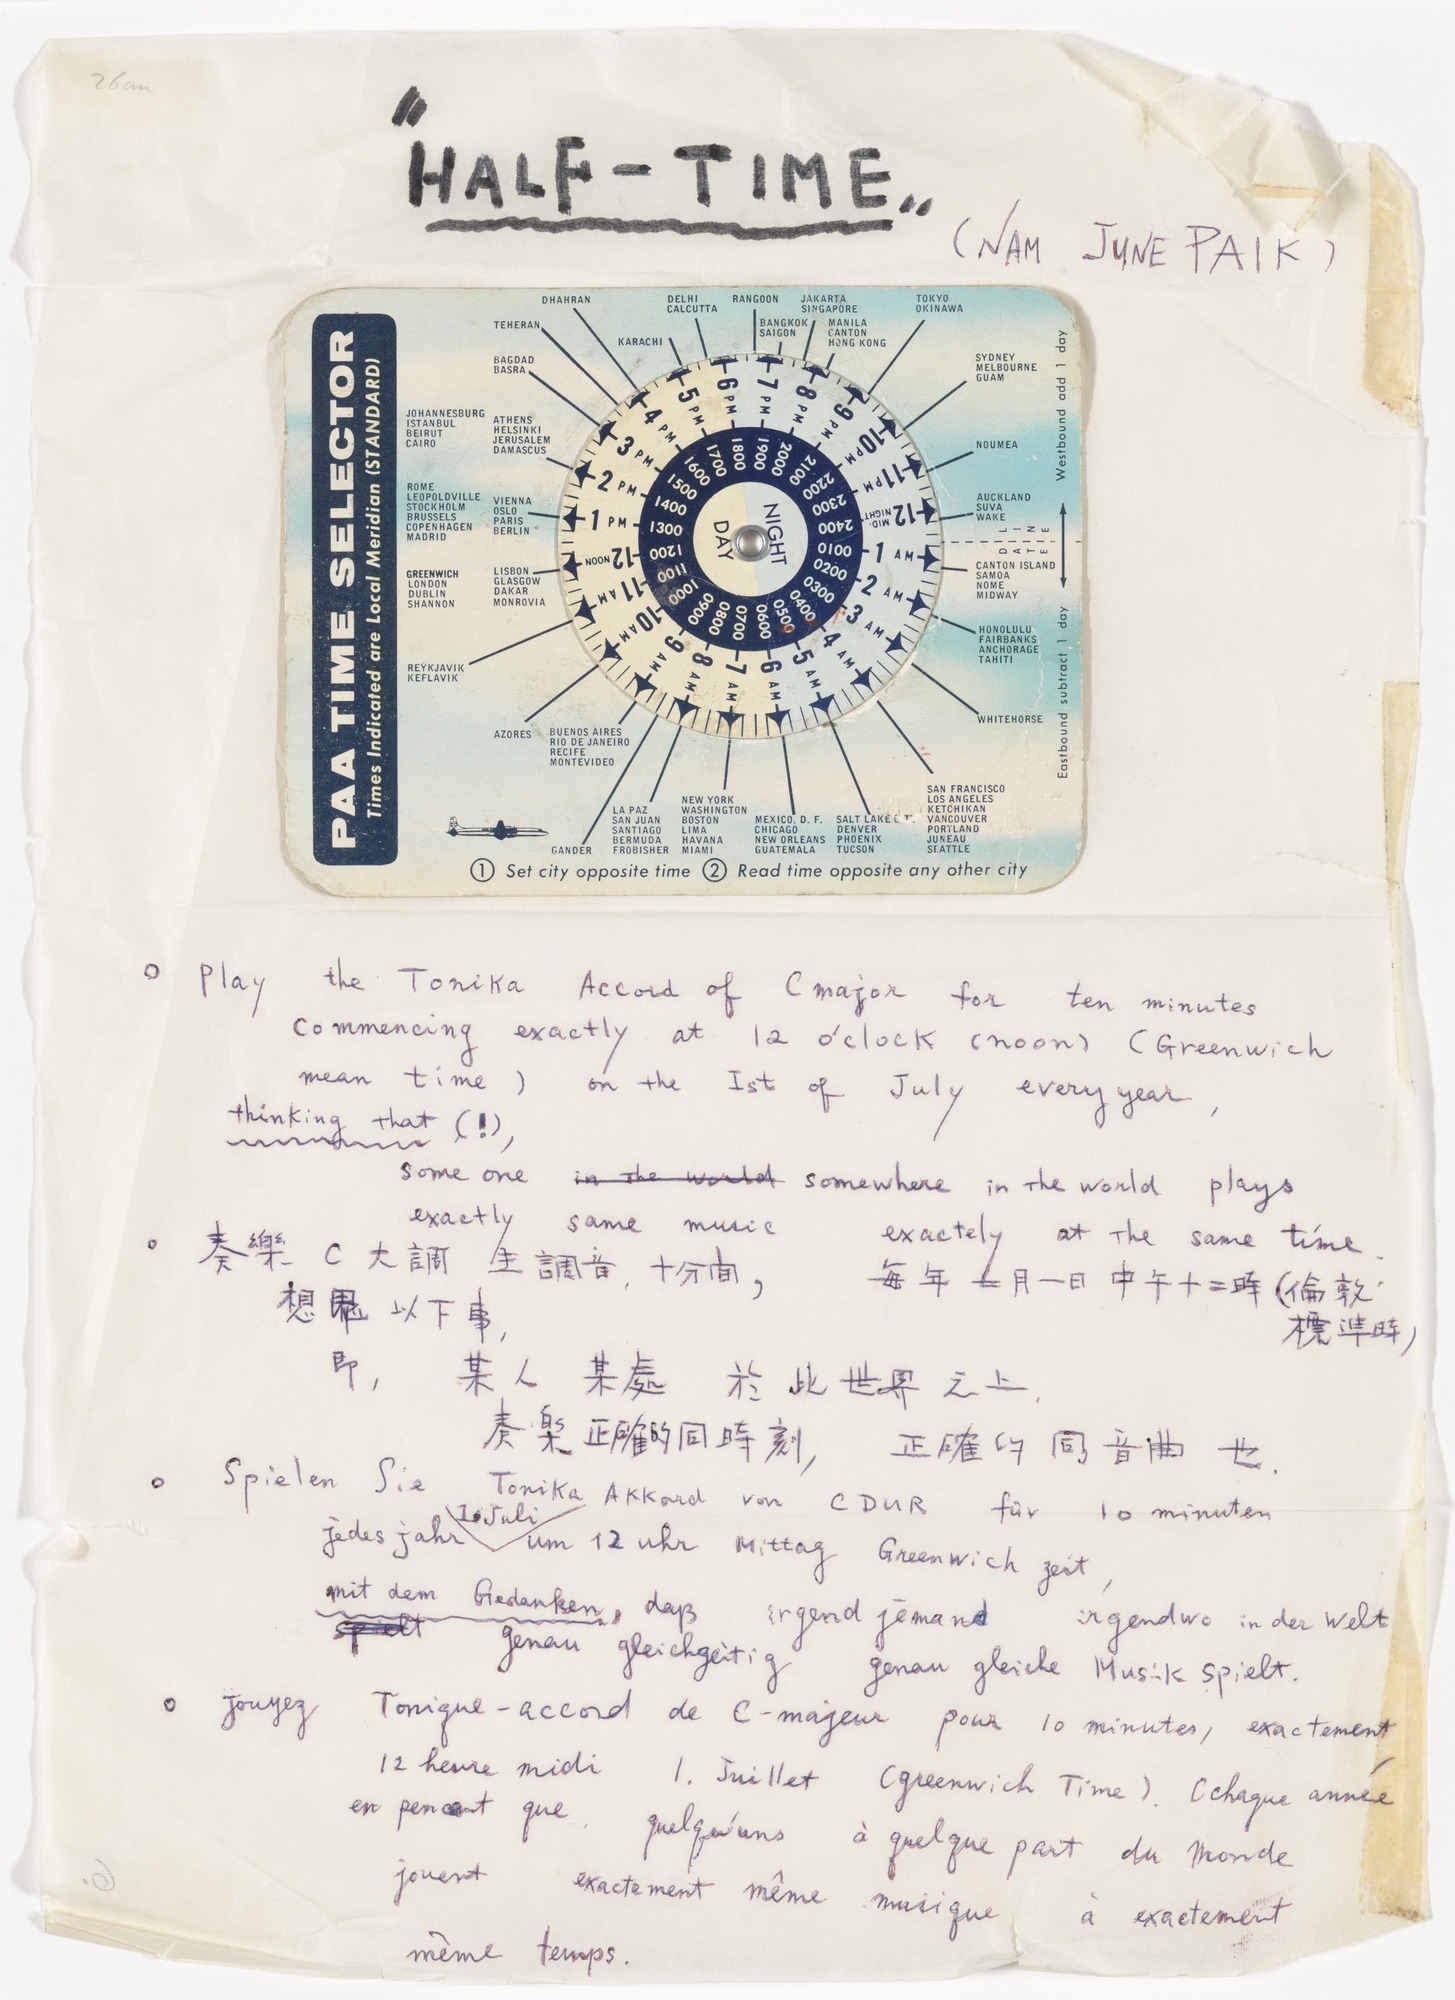 26cm
"HALF-TIME"
(NAM JUNE PAIK)
PAA TIME SELECTOR
Times Indicated are Local Meridian (STANDARD)
DHAHRAN
TEHERAN
BAGDAD
BASRA
KARACHI
DELHI
CALCUTTA
RANGOON
BANGKOK
SAIGON
JAKARTA
SINGAPORE
MANILA
CANTON
HONG KONG
TOKYO
OKINAWA
SYDNEY
MELBOURNE
GUAM
NOUMEA
AUCKLAND
SUVA
WAKE
DATE LINE
CANTON ISLAND
SAMOA
NOME
MIDWAY
HONOLULU
FAIRBANKS
ANCHORAGE
TAHITI
WHITEHORSE
SAN FRANCISCO
LOS ANGELES
KETCHIKAN
VANCOUVER
PORTLAND
JUNEAU
SEATTLE
SALT LAKE C'T'
DENVER
PHOENIX
TUCSON
MEXICO, D. F.
CHICAGO
NEW ORLEANS
GUATEMALA
NEW YORK
WASHINGTON
BOSTON
LIMA
HAVANA
MIAMI
LA PAZ
SAN JUAN
SANTIAGO
BERMUDA
FROBISHER
GANDER
BUENOS AIRES
RIO DE JANEIRO
RECIFE
MONTEVIDEO
AZORES
REYKJAVIK
KEFLAVIK
GREENWICH
LONDON
DUBLIN
SHANNON
LISBON
GLASGOW
DAKAR
MONROVIA
ROME
LEOPOLDVILLE
STOCKHOLM
BRUSSELS
COPENHAGEN
MADRID
VIENNA
OSLO
PARIS
BERLIN
JOHANNESBURG
ISTANBUL
BEIRUT
CAIRO
ATHENS
HELSINKI
JERUSALEM
DAMASCUS
Westbound add 1 day
Eastbound subtract 1 day
1 PM 2 PM 3 PM 4 PM 5 PM 6 PM 7 PM 8 PM 9 PM 10 PM 11 PM 12 MID-NIGHT
1 AM 2 AM 3 AM 4 AM 5 AM 6 AM 7 AM 8 AM 9 AM 10 AM 11 AM 12 NOON
1300 1400 1500 1600 1700 1800 1900 2000 2100 2200 2300 2400
0100 0200 0300 0400 0500 0600 0700 0800 0900 1000 1100 1200
NIGHT
DAY
① Set city opposite time ② Read time opposite any other city
Play the Tonika Accord of C major for ten minutes
commencing exactly at 12 o'clock (noon) (Greenwich
mean time) on the Ist of July every year,
thinking that (!),
some one in the world somewhere in the world plays
exactly same music exactely at the same time.
奏樂 C 大調 主調音, 十分間, 每年 七月一日 中午十二時 (倫敦
標準時)
想思 以下事,
即, 某人 某處 於此世界之上,
奏樂正確的同時刻, 正確的同音曲也.
Spielen Sie Tonika Akkord von C DUR für 10 minuten
jedes jahr 1. Juli um 12 uhr Mittag Greenwich zeit,
mit dem Gedanken, daß irgend jemand irgendwo in der Welt
spielt genau gleichzeitig genau gleiche Musik spielt.
jouyez Tonique-accord de C-majeur pour 10 minutes, exactement
12 heure midi 1. Juillet (greenwich Time). (chaque année
en pensant que quelqu'uns à quelque part du Monde
jouent exactement même musique à exactement
même temps.
6.